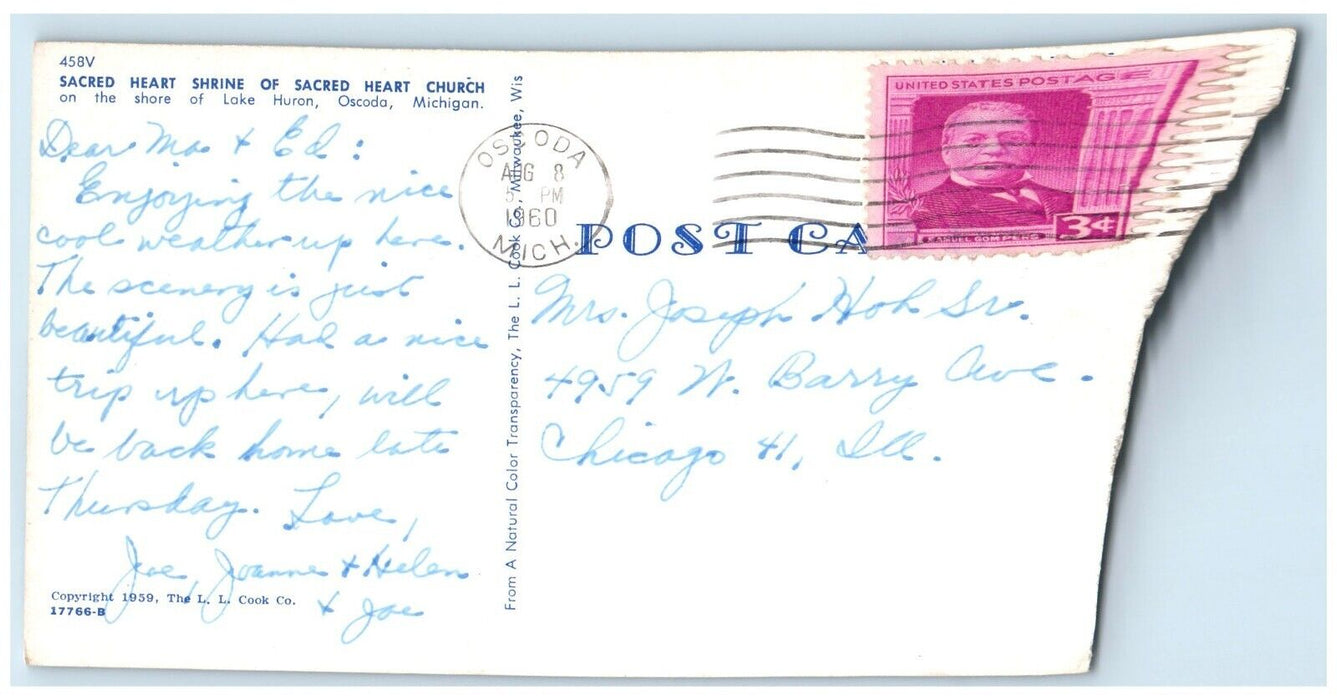 458V
SACRED HEART SHRINE OF SACRED HEART CHURCH
on the shore of Lake Huron, Oscoda, Michigan.
Dear Ma & Ed :
Enjoying the nice
cool weather up here.
The scenery is just
beautiful. Had a nice
trip up here, will
be back home late
Thursday. Love,
Joe, Joanne & Helen
& Joe
Copyright 1959, The L. L. Cook Co.
17766-B
From A Natural Color Transparency, The L. L. Cook Co., Milwaukee, Wis
OSCODA
AUG 8
5 PM
1960
MICH.
UNITED STATES POSTAGE
SAMUEL GOMPERS
3¢
POST CA
Mrs. Joseph Hoh Sr.
4959 W. Barry Ave.
Chicago 41, Ill.